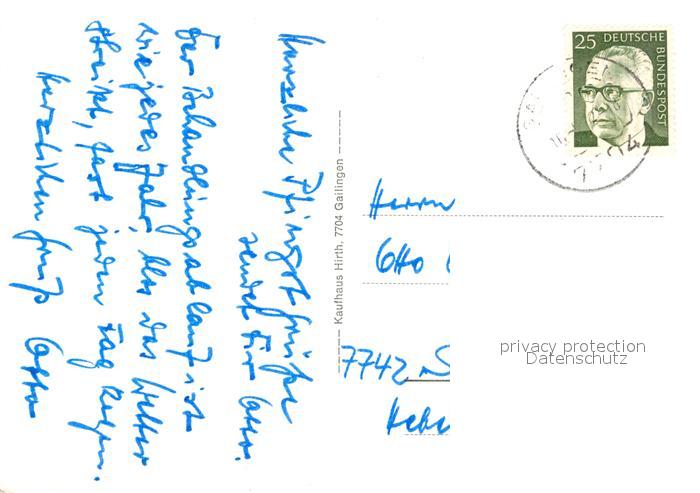 Herzliche Pfingstgrüße
sendet Dir Otto.
Der Behandlungsablauf ist
wie jedes Jahr, blos das Wetter
streikt, fast jeden Tag Regen.
Herzlichen Gruß Otto
Kaufhaus Hirth, 7704 Gailingen
25 DEUTSCHE
BUNDESPOST
7704
Herrn
Otto
7742
privacy protection
Datenschutz